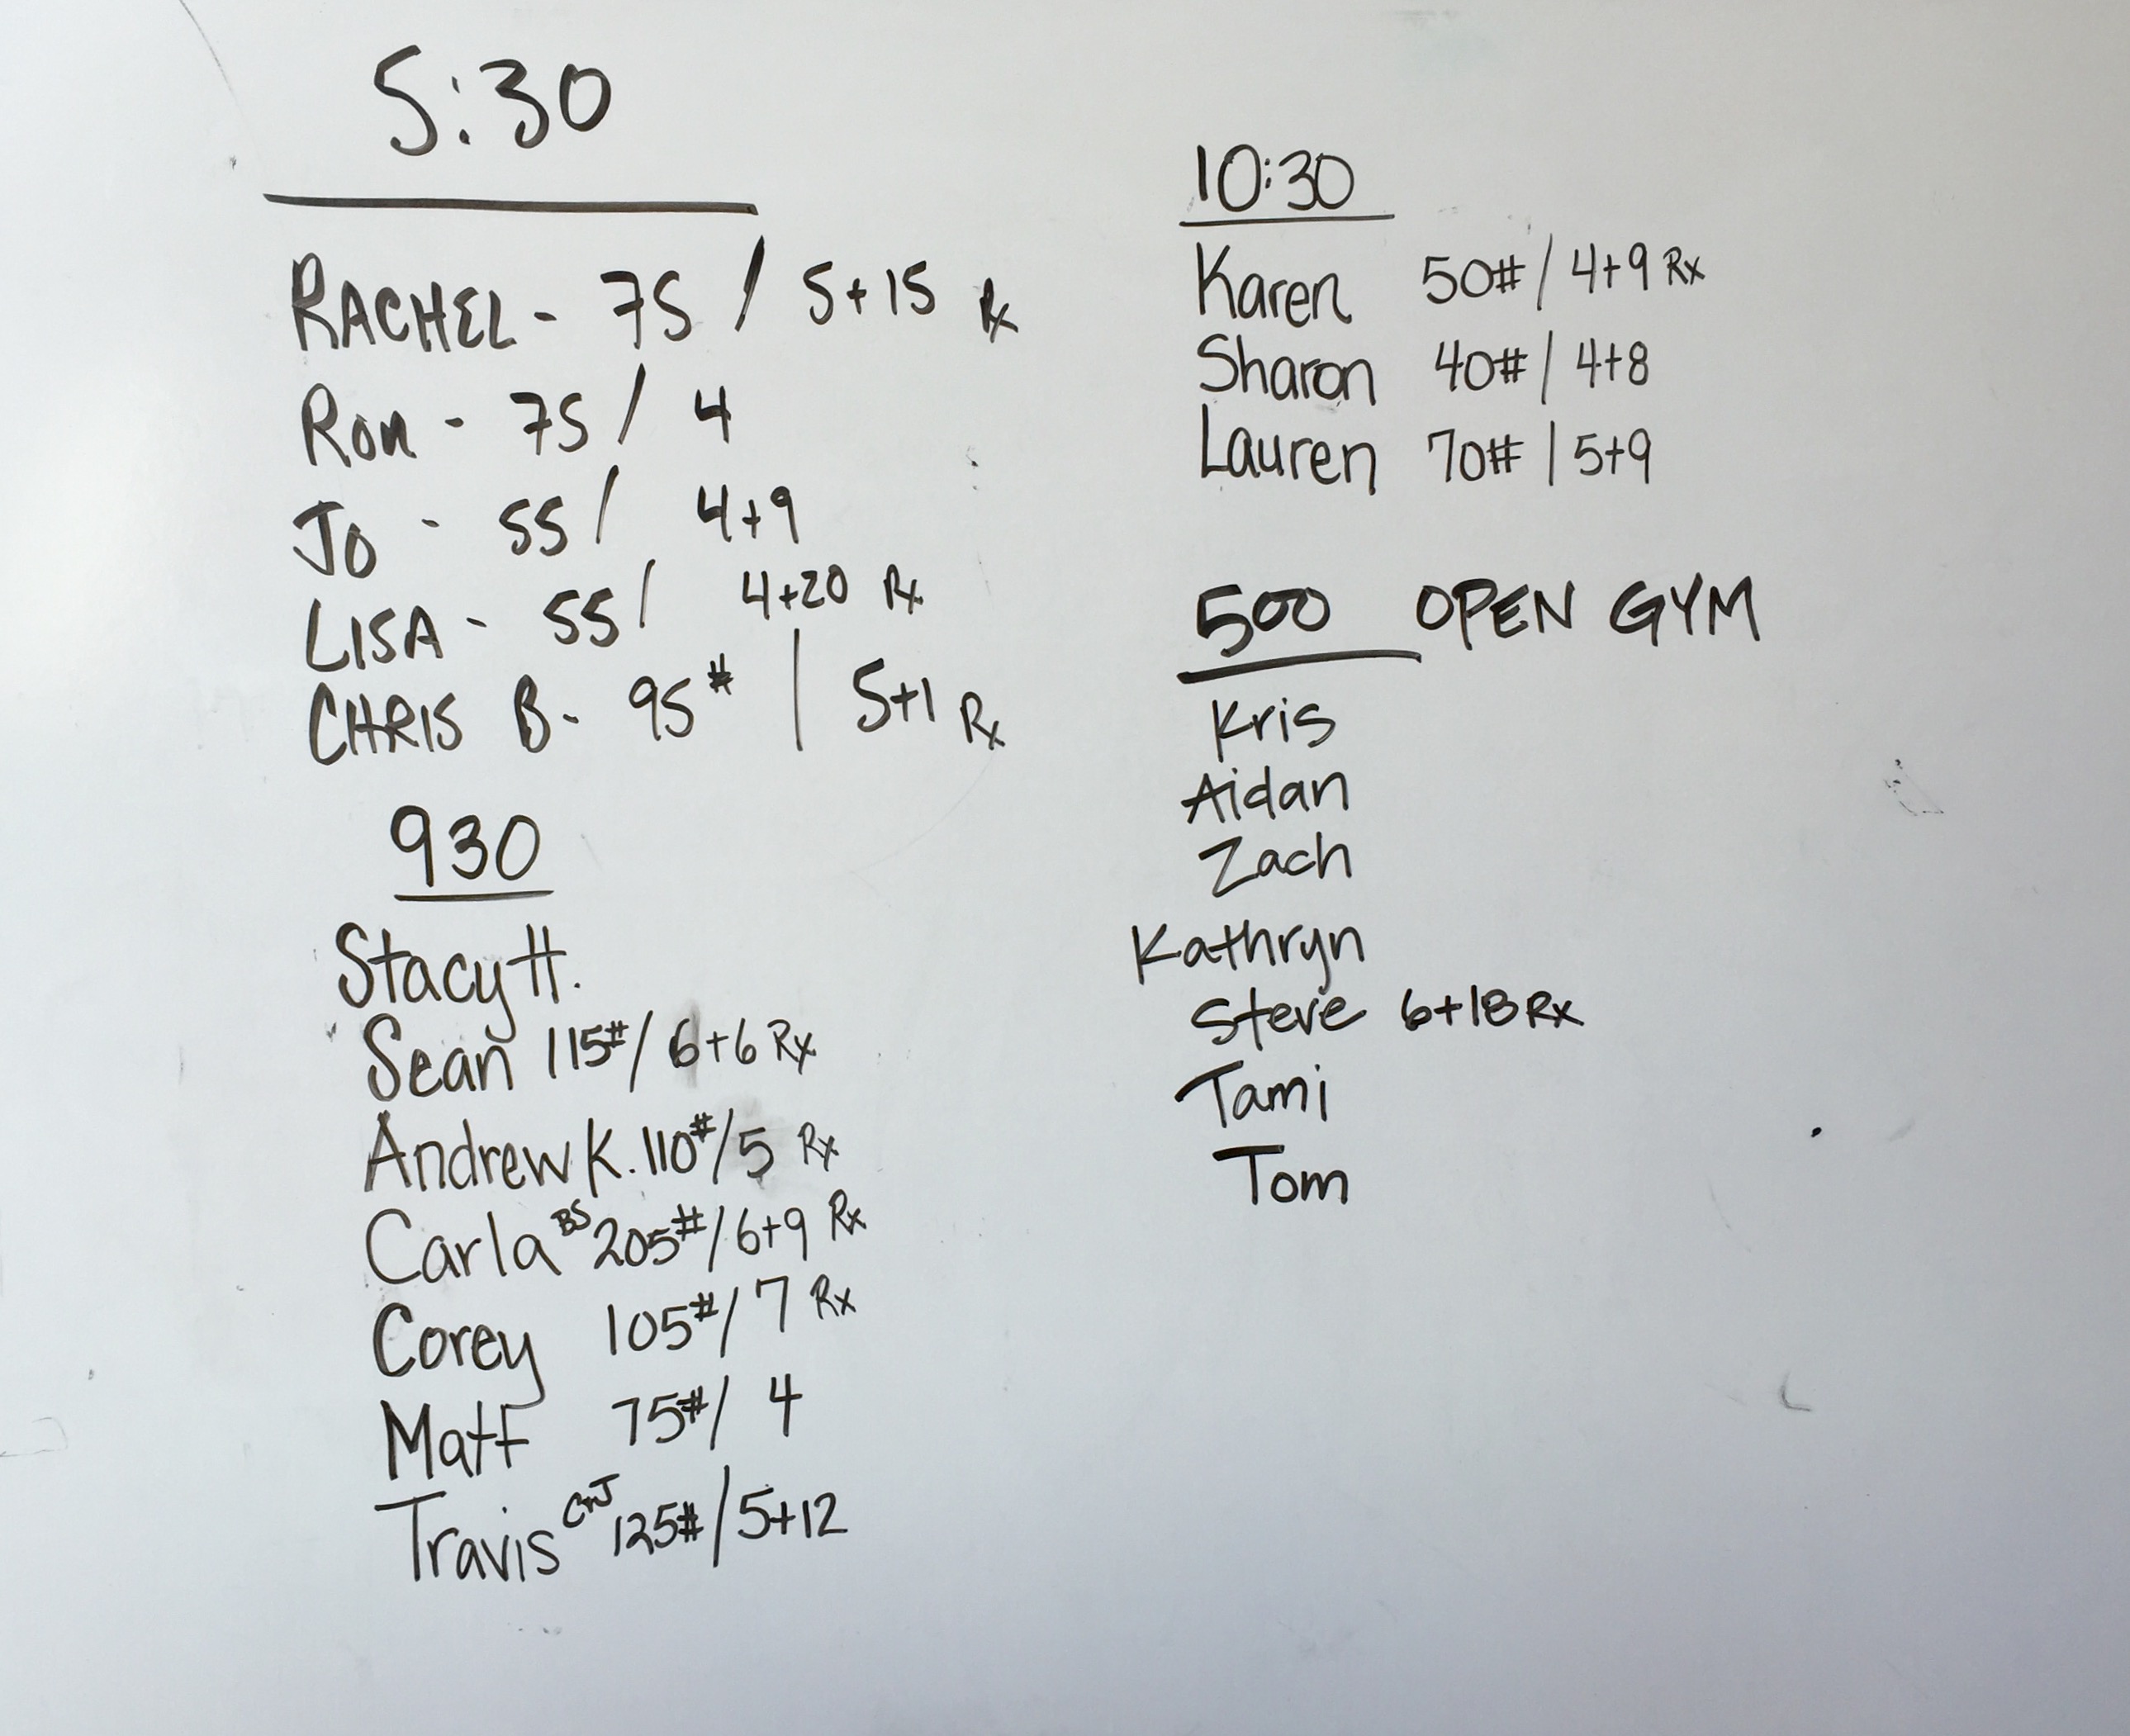 5:30
RACHEL - 75 / 5+15 Rx
Ron - 75 / 4
Jo - 55 / 4+9
LISA - 55 / 4+20 Rx
CHRIS B - 95# | 5+1 Rx
930
Stacy H.
Sean 115# / 6+6 Rx
Andrew K. 110# / 5 Rx
Carla BS 205# / 6+9 Rx
Corey 105# / 7 Rx
Matt 75# / 4
Travis CnJ 125# / 5+12
10:30
Karen 50# / 4+9 Rx
Sharon 40# / 4+8
Lauren 70# | 5+9
500 OPEN GYM
Kris
Aidan
Zach
Kathryn
Steve 6+18 Rx
Tami
Tom